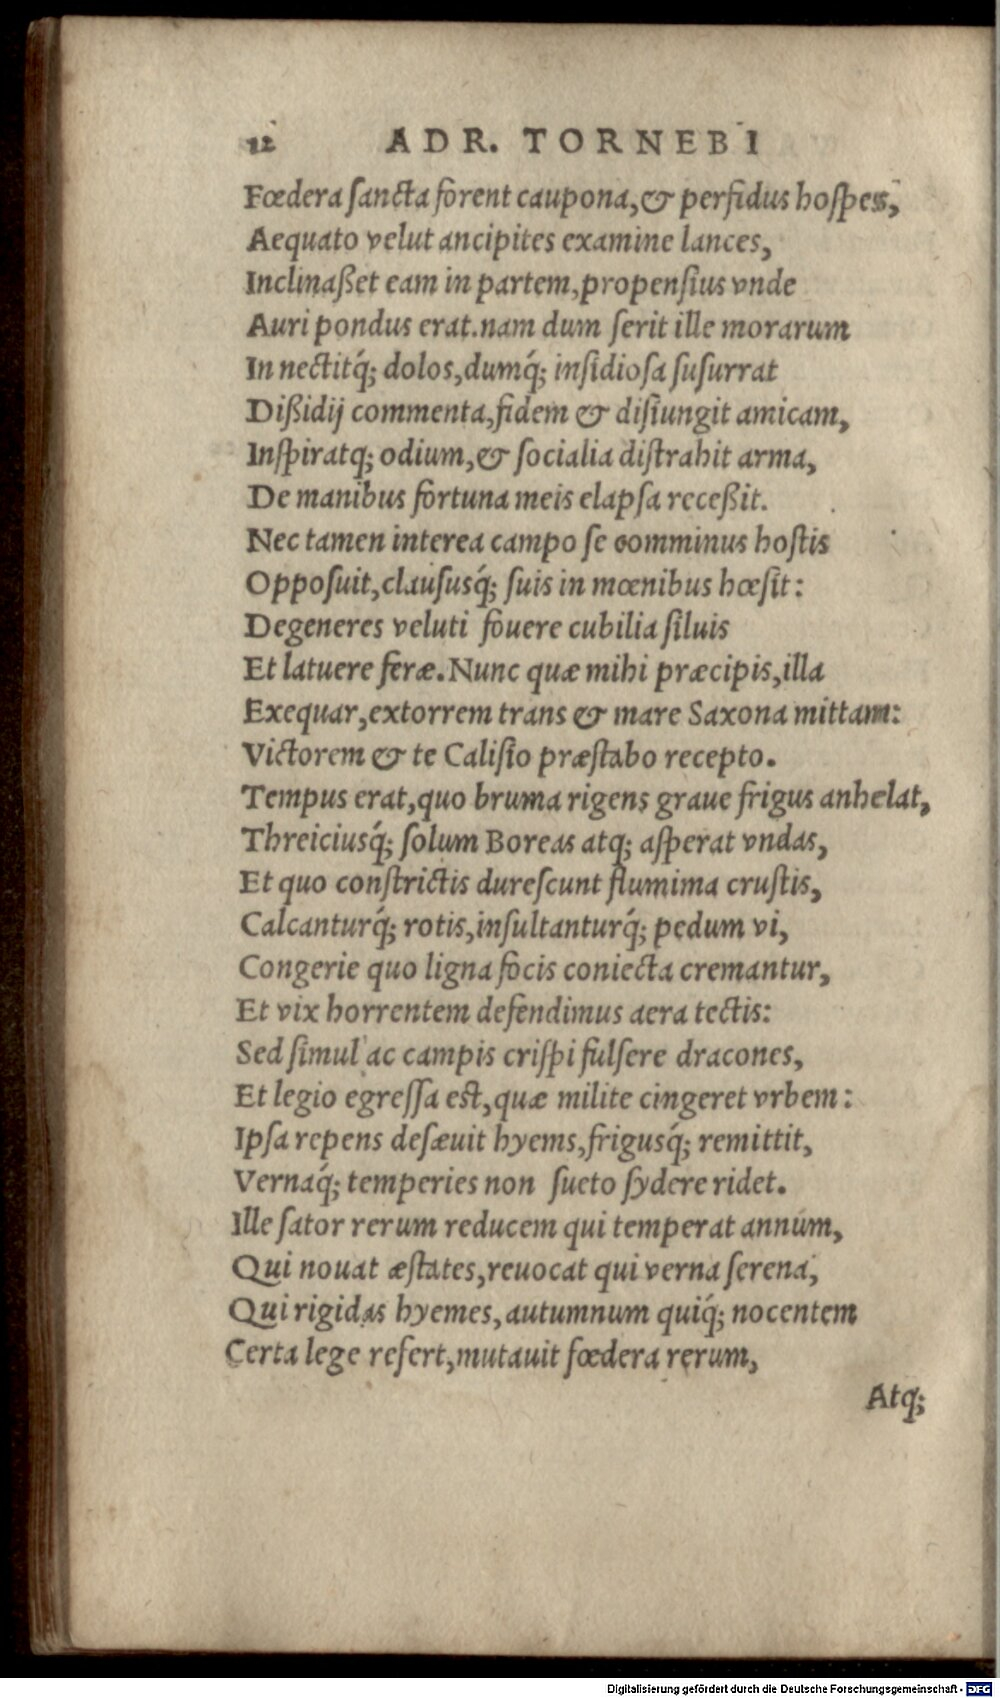 12 ADR. TORNEBI
Fœdera ſancta forent caupona, & perfidus hoſpes,
Aequato velut ancipites examine lances,
Inclinaßet eam in partem, propenſius vnde
Auri pondus erat. nam dum ſerit ille morarum
In nectitq́; dolos, dumq́; inſidioſa ſuſurrat
Dißidij commenta, fidem & diſiungit amicam,
Inſpiratq; odium, & ſocialia diſtrahit arma,
De manibus fortuna meis elapſa receßit.
Nec tamen interea campo ſe comminus hoſtis
Oppoſuit, clauſusq́; ſuis in mœnibus hœſit:
Degeneres veluti fouere cubilia ſiluis
Et latuere feræ. Nunc quæ mihi præcipis, illa
Exequar, extorrem trans & mare Saxona mittam:
Victorem & te Caliſio præſtabo recepto.
Tempus erat, quo bruma rigens graue frigus anhelat,
Threiciusq́; ſolum Boreas atq; aſperat vndas,
Et quo conſtrictis dureſcunt flumima cruſtis,
Calcanturq́; rotis, inſultanturq́; pedum vi,
Congerie quo ligna focis coniecta cremantur,
Et vix horrentem defendimus aera tectis:
Sed ſimul ac campis criſpi fulſere dracones,
Et legio egreſſa est, quæ milite cingeret vrbem:
Ipſa repens deſæuit hyems, frigusq́; remittit,
Vernaq́; temperies non ſueto ſydere ridet.
Ille ſator rerum reducem qui temperat annum,
Qui nouat æſtates, reuocat qui verna ſerena,
Qui rigidas hyemes, autumnum quiq́; nocentem
Certa lege refert, mutauit fœdera rerum,
Atq;
Digitalisierung gefördert durch die Deutsche Forschungsgemeinschaft - DFG